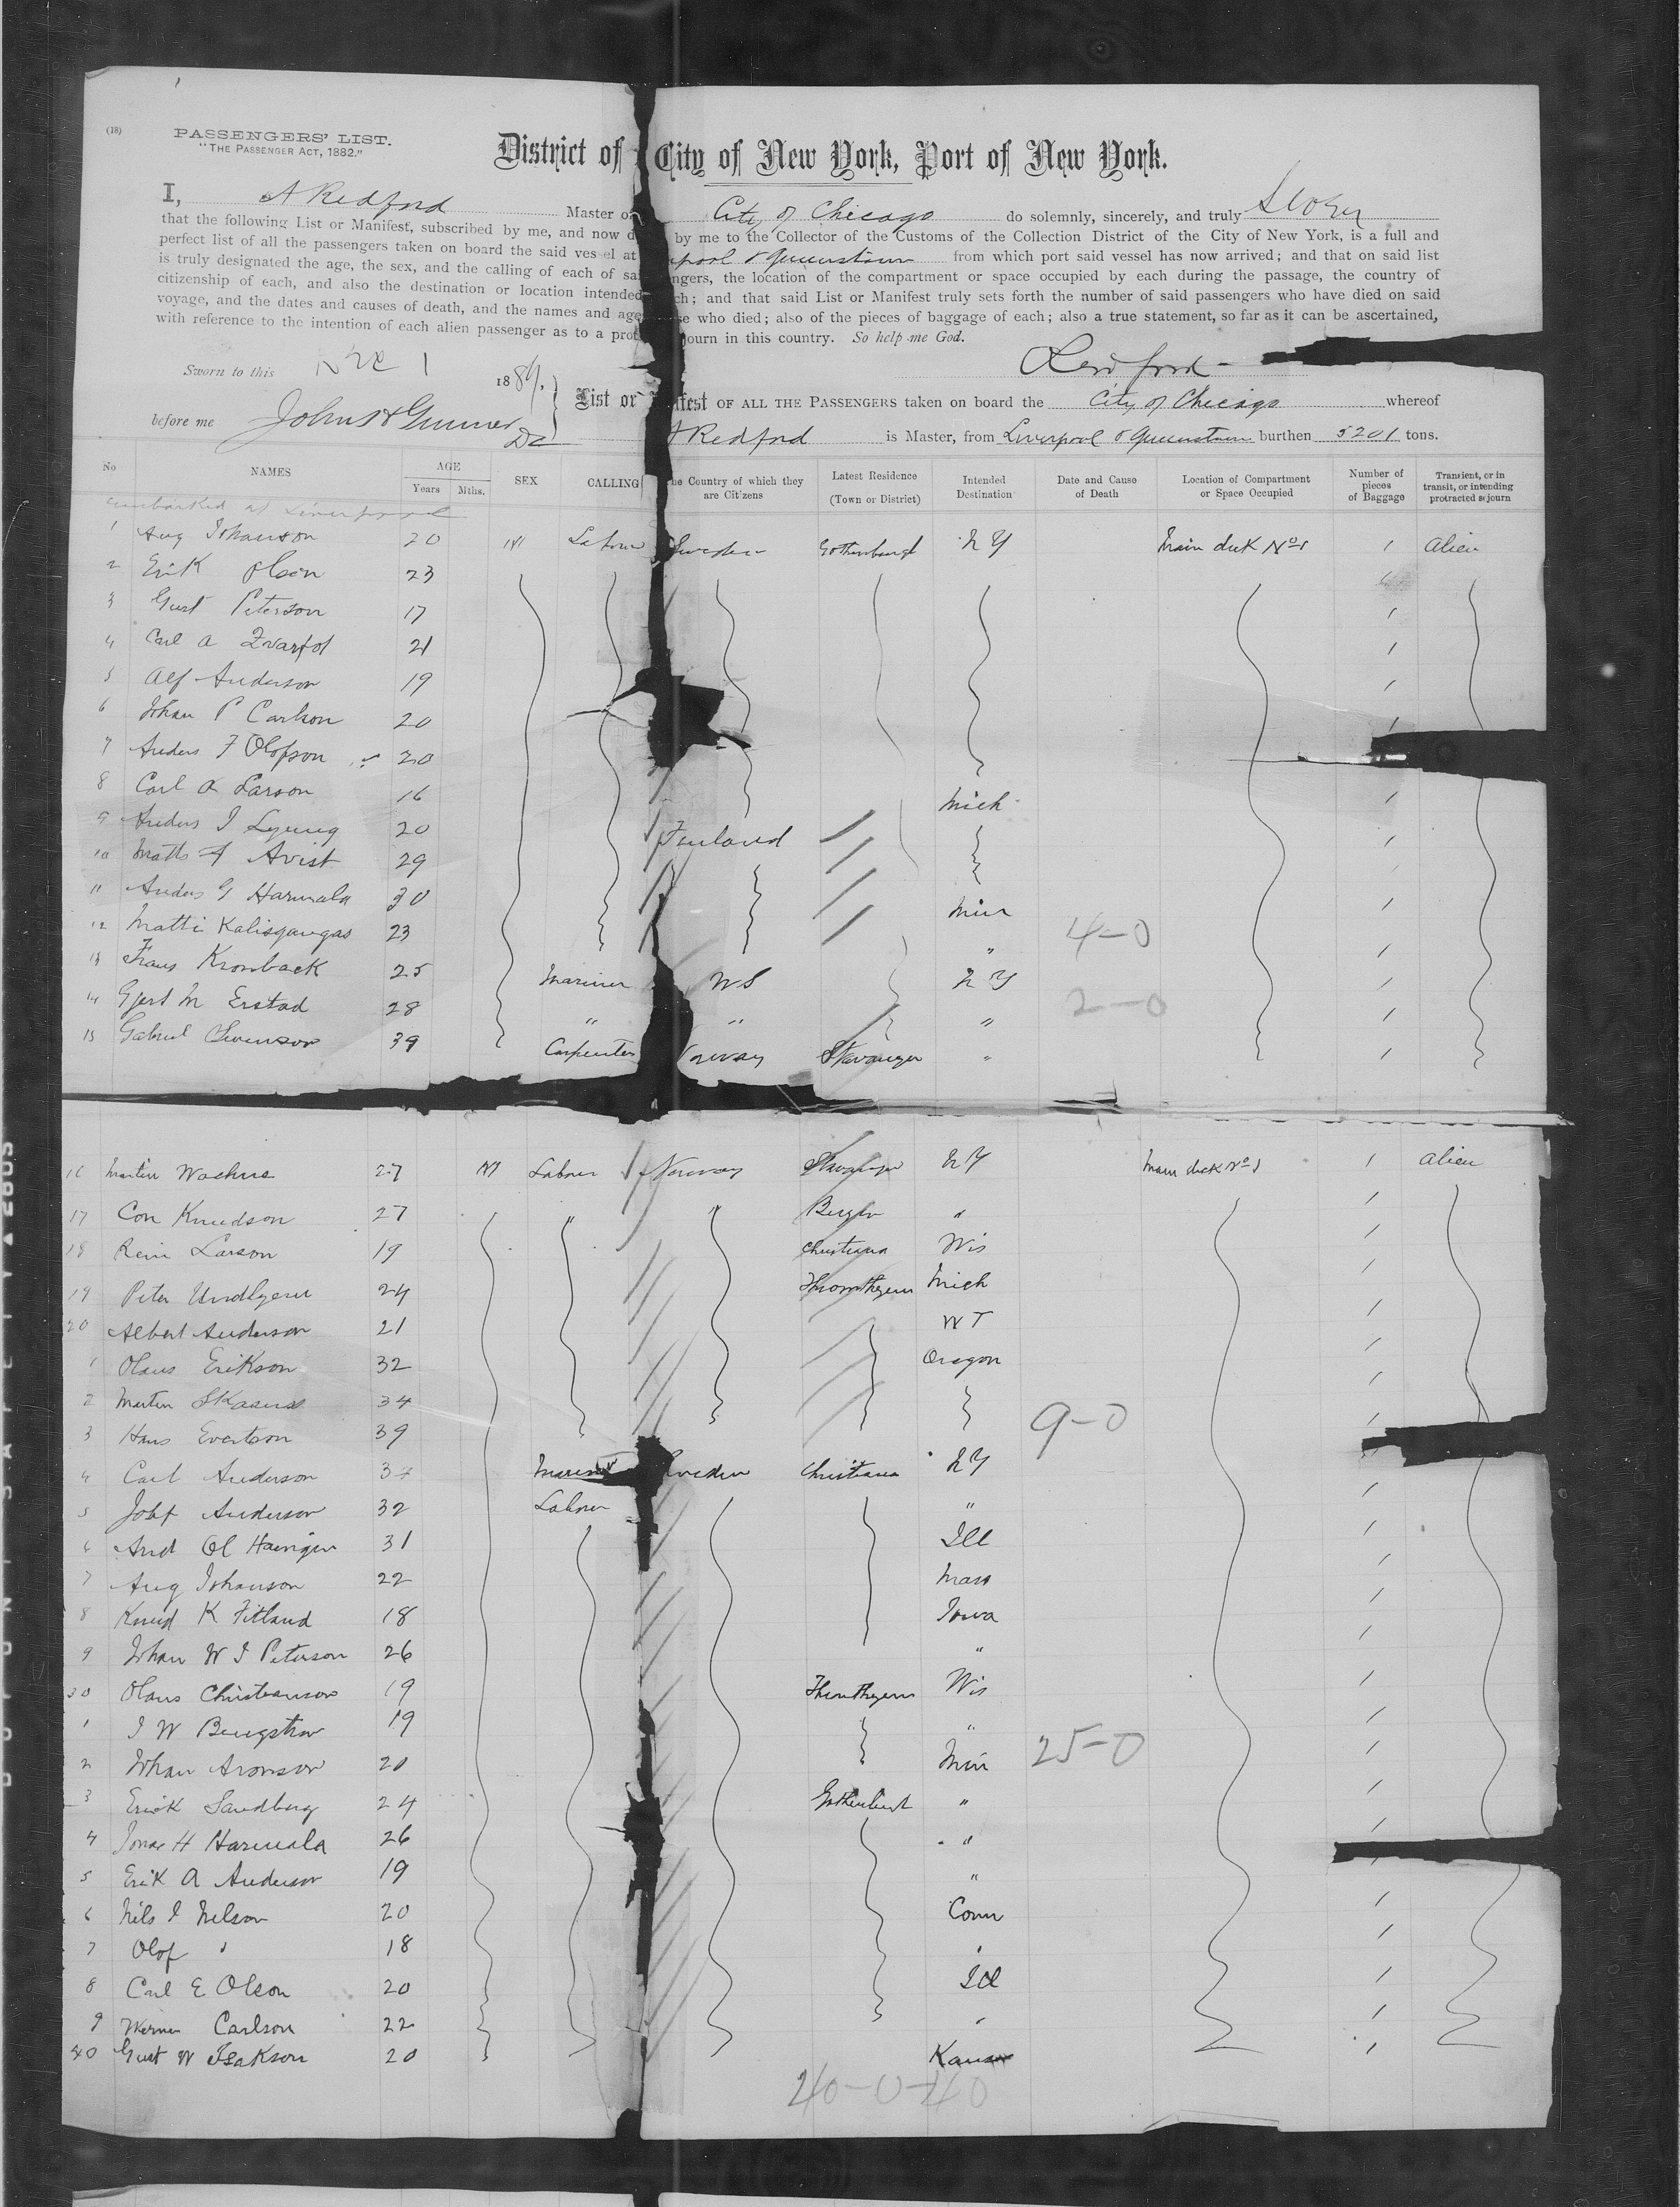 (18)
PASSENGERS' LIST.
"THE PASSENGER ACT, 1882."
District of City of New York, Port of New York.
I, A Redford Master of City of Chicago do solemnly, sincerely, and truly Swear
that the following List or Manifest, subscribed by me, and now d by me to the Collector of the Customs of the Collection District of the City of New York, is a full and
perfect list of all the passengers taken on board the said vessel at pool & Queenstown from which port said vessel has now arrived; and that on said list
is truly designated the age, the sex, and the calling of each of sa ngers, the location of the compartment or space occupied by each during the passage, the country of
citizenship of each, and also the destination or location intended ch; and that said List or Manifest truly sets forth the number of said passengers who have died on said
voyage, and the dates and causes of death, and the names and age se who died; also of the pieces of baggage of each; also a true statement, so far as it can be ascertained,
with reference to the intention of each alien passenger as to a prot journ in this country. So help me God.
Redford
Sworn to this 1 1889,
List or ifest OF ALL THE PASSENGERS taken on board the City of Chicago whereof
before me
A Redford is Master, from Liverpool & Queenstown burthen 5201 tons.
No NAMES AGE Years Mths. SEX CALLING he Country of which they are Citizens Latest Residence (Town or District) Intended Destination Date and Cause of Death Location of Compartment or Space Occupied Number of pieces of Baggage Transient, or in transit, or intending protracted sojourn
Embarked at Liverpool
1 Aug Johanson 20 M Labour Sweden Gothenburgh N Y Main deck No 1 1 Alien
2 Erik Olson 23
3 Gust Peterson 17 1
4 Carl A 21 1
5 Alf Anderson 19 1
6 Johan P Carlson 20 1
7 Anders F Olofson 20
8 Carl A Larson 16 Mich 1
9 Anders J Ljung 20 Finland 1
10 Matts A Avist 29
11 Anders G Harmala 30 Min 1
12 Matti Kalisgangas 23 " 4-0 1
13 Frans Kronback 25 Mariner US N Y 1
14 Gjert M Erstad 28 " " " 2-0 1
15 Gabriel Swenson 39 Carpenter orway Stavanger " 1
16 Martin Wachne 27 M Labour Norway Stavanger N Y Main deck No 1 1 Alien
17 Con Knudson 27 " Bergen " 1
18 Rein Larson 19 Christiana Wis 1
19 Peter 24 Thronthyem Mich 1
20 Albert Anderson 21 W T 1
1 Olaus Erikson 32 Oregon 1
2 Martin Skaanes 34 1
3 Hans Evertson 39 9-0 1
4 Carl Anderson 37 Mariner weden Christiana N Y
5 Johf Anderson 32 Labour " 1
6 And Ol Haingen 31 Ill 1
7 Aug Johanson 22 Mass 1
8 Knud K Fitland 18 Iowa 1
9 Johan W J Peterson 26 " 1
30 Olaus Christianson 19 Thronthyem Wis 1
1 J W Bengston 19 " 1
2 Johan Aronson 20 Min 25-0 1
3 Erick Sandberg 24 Gothenburgh " 1
4 Jonas H Harmala 26 " 1
5 Erik A Anderson 19 " 1
6 Nils J Nelson 20 Conn 1
7 Olof " 18 " 1
8 Carl E Olson 20 Ill 1
9 Werner Carlson 22 " 1
40 Gust W Isakson 20 Kansas 1
40-0-40